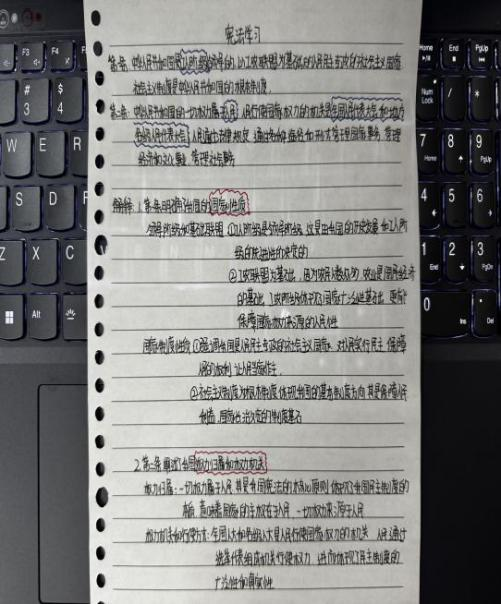 宪法学习
第一条：中华人民共和国是工人阶级领导的、以工农联盟为基础的人民民主专政的社会主义国家
社会主义制度是中华人民共和国的根本制度。
第二条：中华人民共和国的一切权力属于人民 人民行使国家权力的机关是全国人民代表大会和地方
各级人民代表大会 人民通过法律规定 通过各种途径和形式管理国家事务 管理
经济和文化事业，管理社会事务
解释：1. 第一条明确了我国的国家性质
领导阶级和基础联盟 ①工人阶级是领导阶级 这是由我国的历史发展和工人阶
级的先进性所决定的
②工农联盟为基础
的基础
保障国家权力来源的人民性
国家制度性质 ①强调我国是人民民主专政的社会主义国家 对人民实行民主 保障
人民的权利 让人民当家作主
②社会主义制度为根本制度 体现我国的基本制度方向 其是保障人民
2. 第二条阐述了我国权力归属和权力机关
权力归属：一切权力属于人民 其是我国宪法的核心原则 体现了我国民主制度的
意味着国家的主权在于人民 一切权力来源于人民
权力机关和行使方式：全国人大和各级人大是人民行使国家权力的机关 人民通过
选举代表组成机关行使权力 进而体现了民主制度的
广泛性和真实性